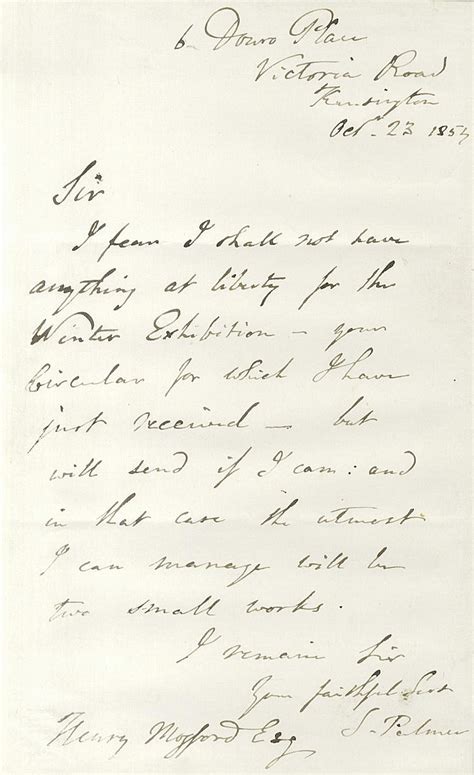 6 Douro Place
Victoria Road
Kensington
Oct. 23 185
Sir
I fear I shall not have
anything at liberty for the
Winter Exhibition – your
Circular for which I have
just received – but
will send if I can: and
in that case the utmost
I can manage will be
two small works.
I remain Sir
Your faithful Servt
S. Palmer
Henry Mogford Esq